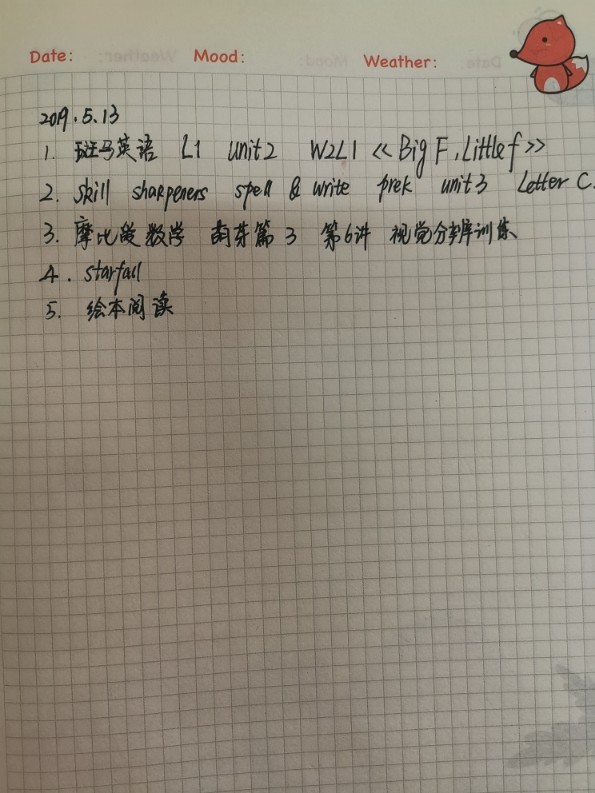 Date: Mood: Weather:
2019.5.13
1. 斑马英语 L1 unit2 W2L1 <<Big F, Little f>>
2. skill sharpeners spell & write prek unit3 Letter C.
3. 摩比爱数学 萌芽篇 3 第6讲 视觉分辨训练
4. starfall
5. 绘本阅读